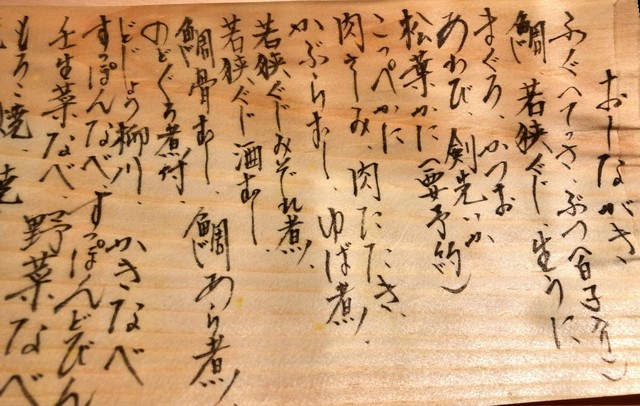 おしながき
ふぐへてっさ、ぶつ(白子入り)
鯛 若狭ぐじ 生うに
まぐろ、かつお
あわび、剣先いか
松葉かに(要予約)
こっぺかに
肉さしみ、肉たたき、
かぶらむし、ゆば煮
若狭ぐじみぞれ煮
若狭ぐじ酒むし
鯛骨むし、鯛あら煮
のどぐろ煮付
どじょう柳川、かきなべ
すっぽんなべ、すっぽんどびん
壬生菜なべ、野菜なべ
もろこ焼
焼